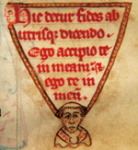 Hic detur fides ab
utrisq; dicendo.
Ego accipio te
in meam: &
ego te in
meū.